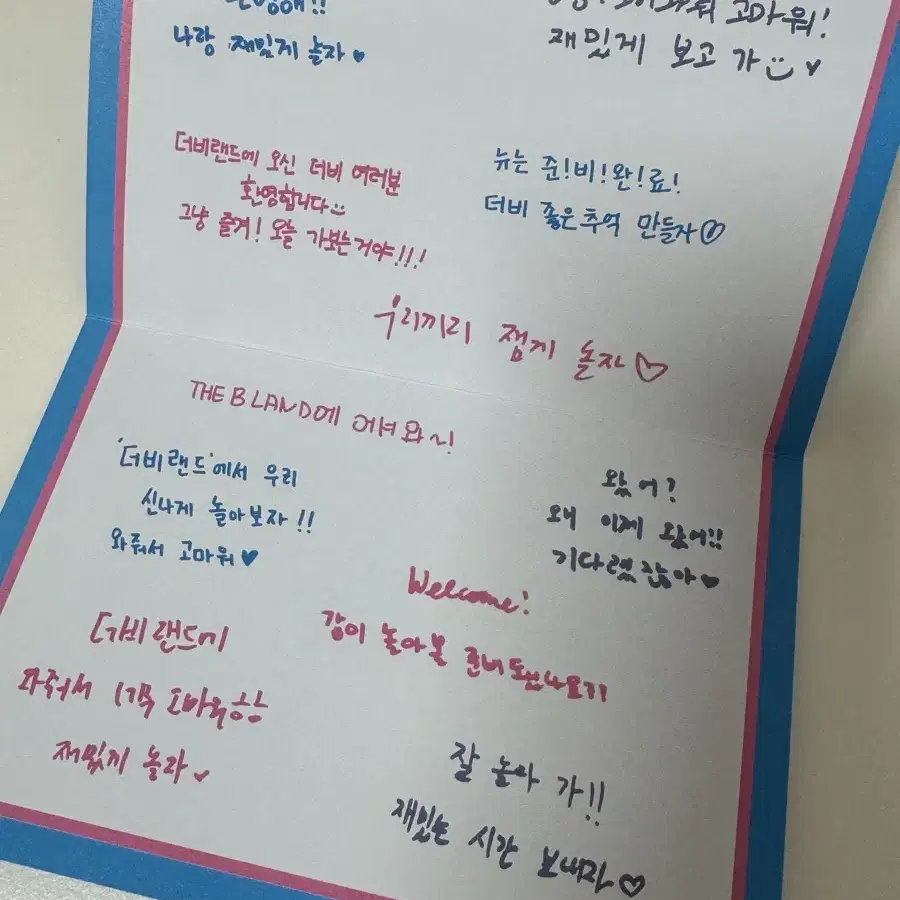 환영해!!
나랑 재밌게 놀자♥
와줘 고마워!
재밌게 보고 가 ♥
더비랜드에 오신 더비 여러분
환영합니다
그냥 즐겨! 오늘 가보는거야!!!
뉴는 준!비!완!료!
더비 좋은추억 만들자♡
우리끼리 잼게 놀자♡
THE B LAND에 어서와~!
'더비랜드'에서 우리
신나게 놀아보자!!
와줘서 고마워♥
왔어?
왜 이제 왔어!!
기다렸잖아♥
Welcome!
같이 놀아볼 준비 됐나요?!
더비랜드에
와줘서 고마워
재밌게 놀라
잘 놀아 가!!
재밌는 시간 보내자♡